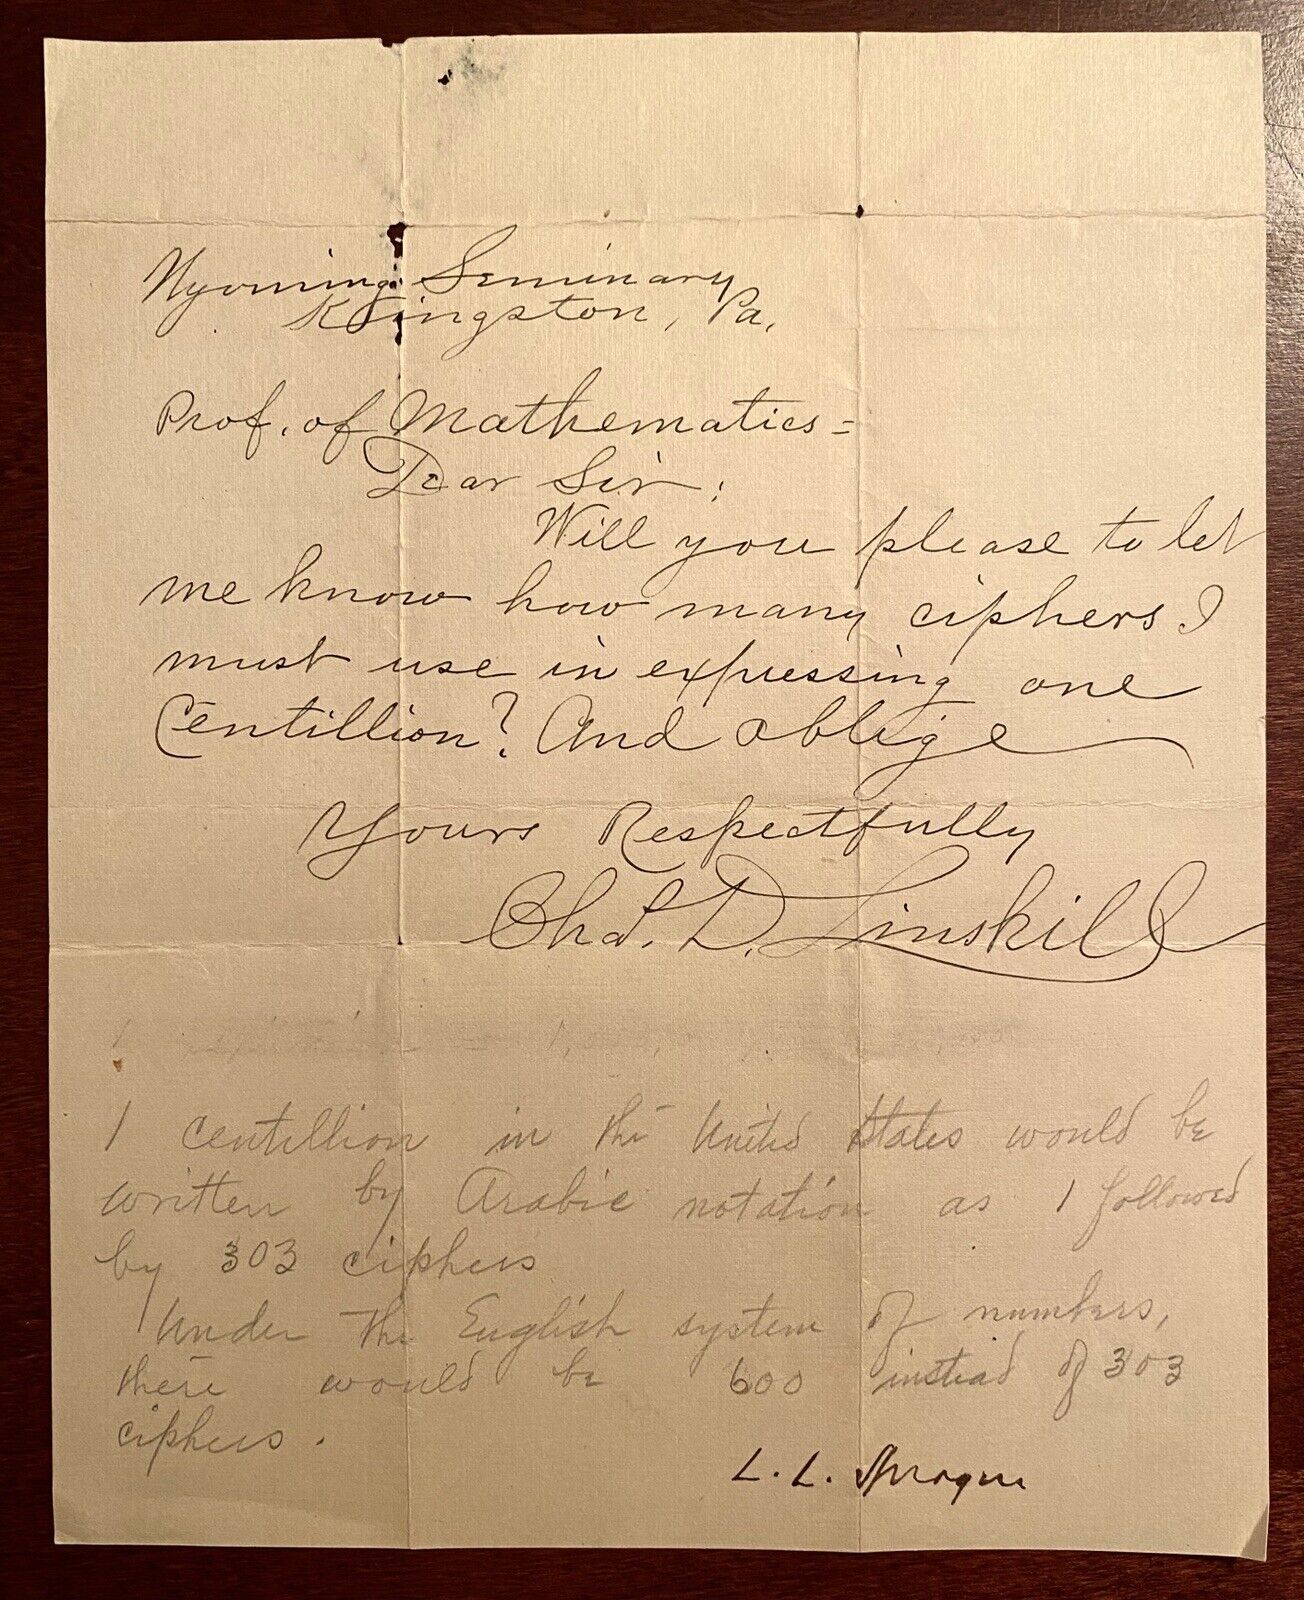 Wyoming Seminary
Kingston, Pa.
Prof. of Mathematics =
Dear Sir:
Will you please to let
me know how many ciphers I
must use in expressing one
Centillion? And oblige
Yours Respectfully
Chas. D. Linskill
1 centillion in the United States would be
written by Arabic notation as 1 followed
by 303 ciphers
Under the English system of numbers,
there would be 600 instead of 303
ciphers.
L. L. Sprague